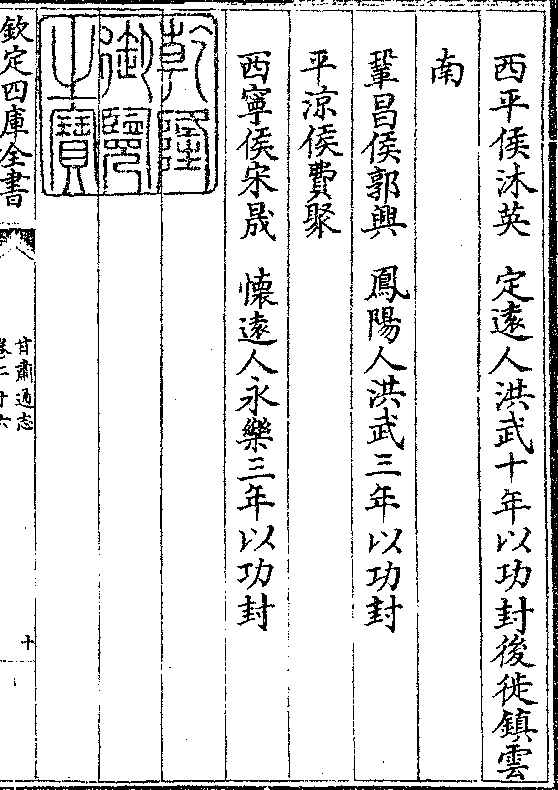 西平侯沐英　定遠人洪武十年以功封後徙鎮雲
南
鞏昌侯郭興　鳳陽人洪武三年以功封
平涼侯費聚
西寧侯宋晟　懷遠人永樂三年以功封
乾隆
御覽
之寶
欽定四庫全書
甘肅通志
卷二十六
十